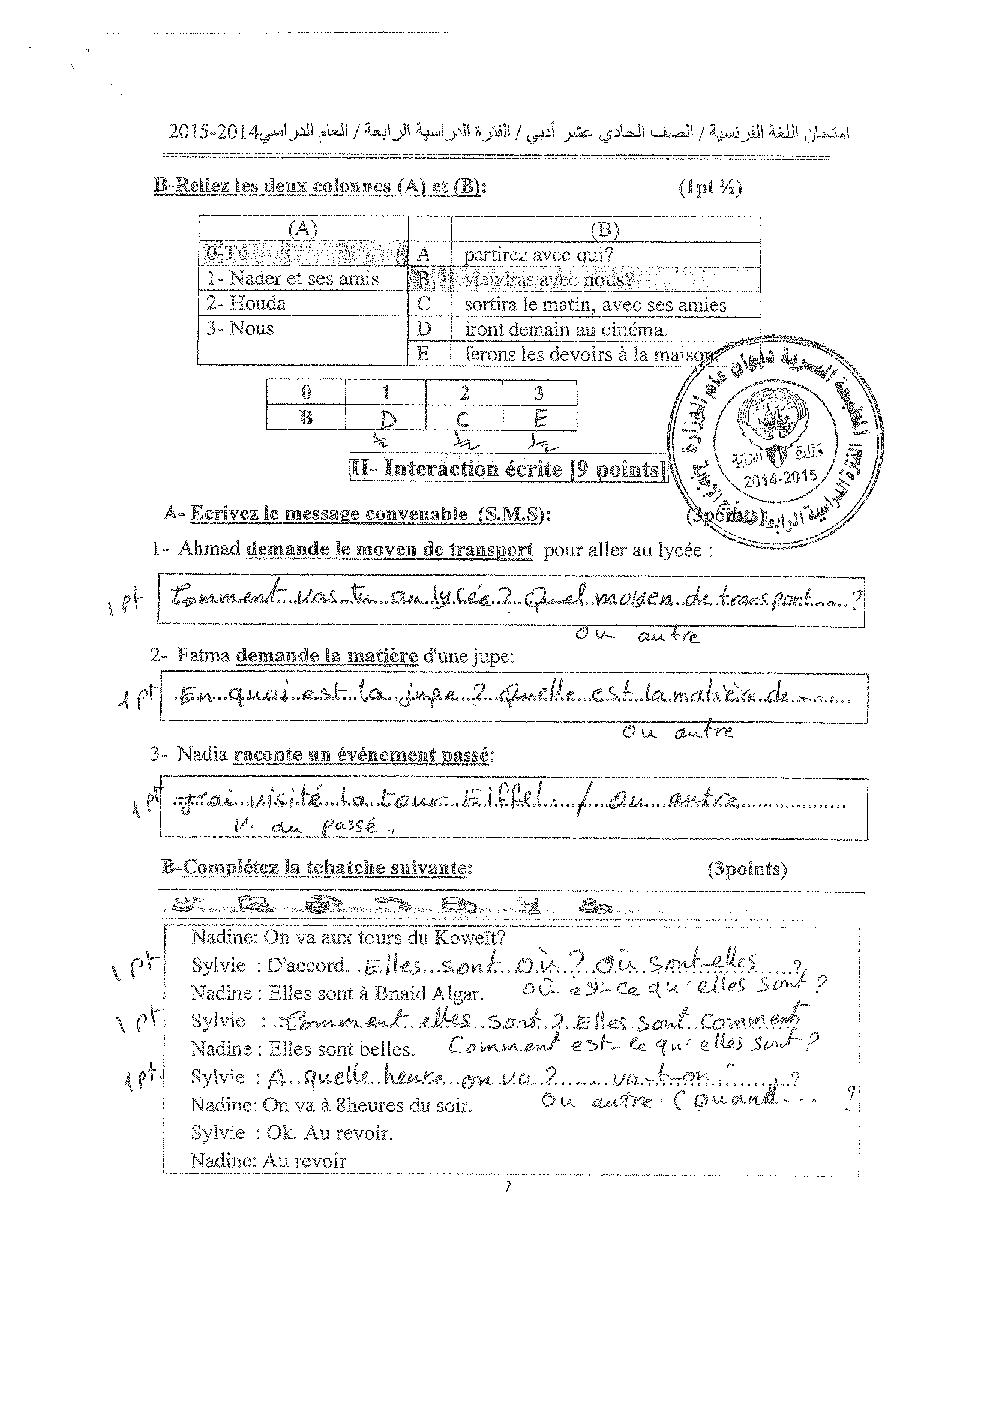 امتحان اللغة الفرنسية / الصف الحادي عشر أدبي / الفترة الدراسية الرابعة / العام الدراسي 2014-2015
B-Reliez les deux colonnes (A) et (B): (1pt ½)
(A) (B)
0-Tu A partirez avec qui?
1- Nader et ses amis B viendras avec nous?
2- Houda C sortira le matin, avec ses amies
3- Nous D iront demain au cinéma.
E ferons les devoirs à la maison.
0 1 2 3
B D C E
½ ½ ½
II- Interaction écrite [9 points]
2014-2015
A- Ecrivez le message convenable (S.M.S): (3points)
1- Ahmad demande le moyen de transport pour aller au lycée :
1 pt Comment vas tu au lycée ? Quel moyen de transport....?
ou autre
2- Fatma demande la matière d'une jupe:
1 pt En quoi est la jupe ? Quelle est la matière de ......
ou autre
3- Nadia raconte un événement passé:
1 pt J'ai visité la tour Eiffel. / ou autre
V. du passé.
B-Complétez la tchatche suivante: (3points)
Nadine: On va aux tours du Koweït?
1 pt Sylvie : D'accord. Elles sont où ? Où sont-elles ....?
Nadine : Elles sont à Bnaid Algar. où est-ce qu'elles sont ?
1 pt Sylvie : Comment elles sont ? Elles sont comment
Nadine : Elles sont belles. Comment est-ce qu'elles sont ?
1 pt Sylvie : A quelle heure on va ?...... va-t-on ....?
Nadine: On va à 8heures du soir. ou autre (Quand.... ?
Sylvie : Ok. Au revoir.
Nadine: Au revoir